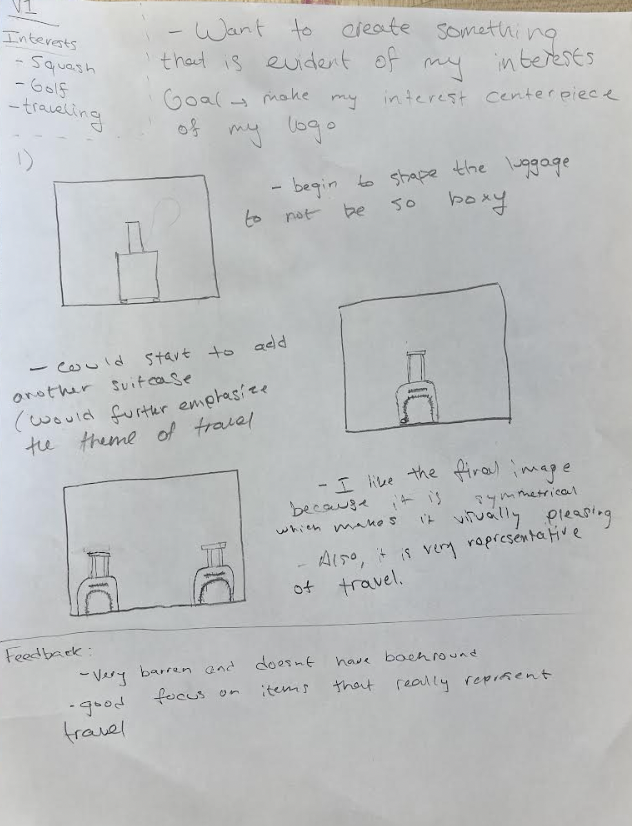 V1
Interests
- Squash
- Golf
- traveling
- Want to create something
that is evident of my interests
Goal → make my interest centerpiece
of my logo
1)
- begin to shape the luggage
to not be so boxy
- could start to add
another suitcase
(would further emphasize
the theme of travel
- I like the final image
because it is symmetrical
which makes it visually pleasing
- Also, it is very representative
of travel.
Feedback:
- Very barren and doesnt have backround
- good focus on items that really represent
travel